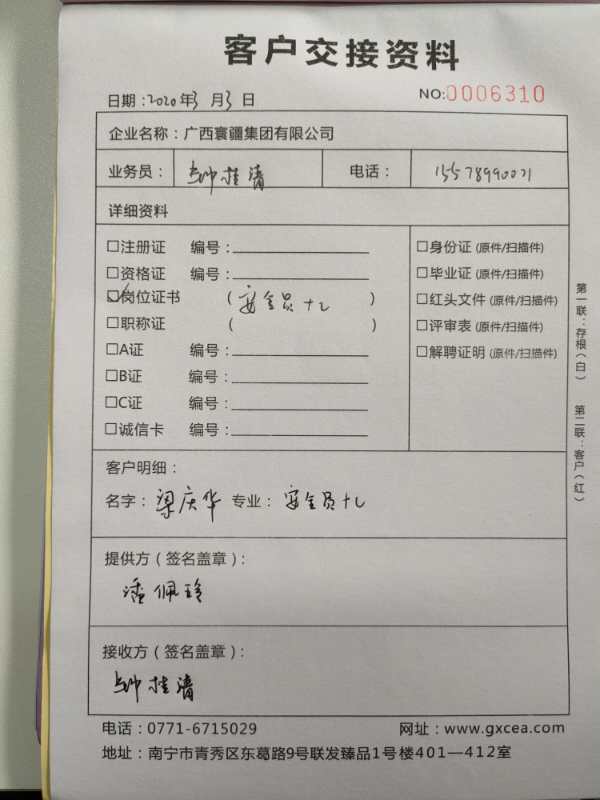 客户交接资料
日期：2020年3月3日 NO:0006310
企业名称：广西寰疆集团有限公司
业务员：钟桂清 电话：15578990071
详细资料
□注册证 编号：
□资格证 编号：
☑岗位证书 （安全员 + 九）
□职称证 （ ）
□A证 编号：
□B证 编号：
□C证 编号：
□诚信卡 编号：
□身份证（原件/扫描件）
□毕业证（原件/扫描件）
□红头文件（原件/扫描件）
□评审表（原件/扫描件）
□解聘证明（原件/扫描件）
第一联：存根（白） 第二联：客户（红）
客户明细：
名字：梁庆华 专业：安全员
提供方（签名盖章）：
潘佩玲
接收方（签名盖章）：
钟桂清
电话：0771-6715029 网址：www.gxcea.com
地址：南宁市青秀区东葛路9号联发臻品1号楼401—412室